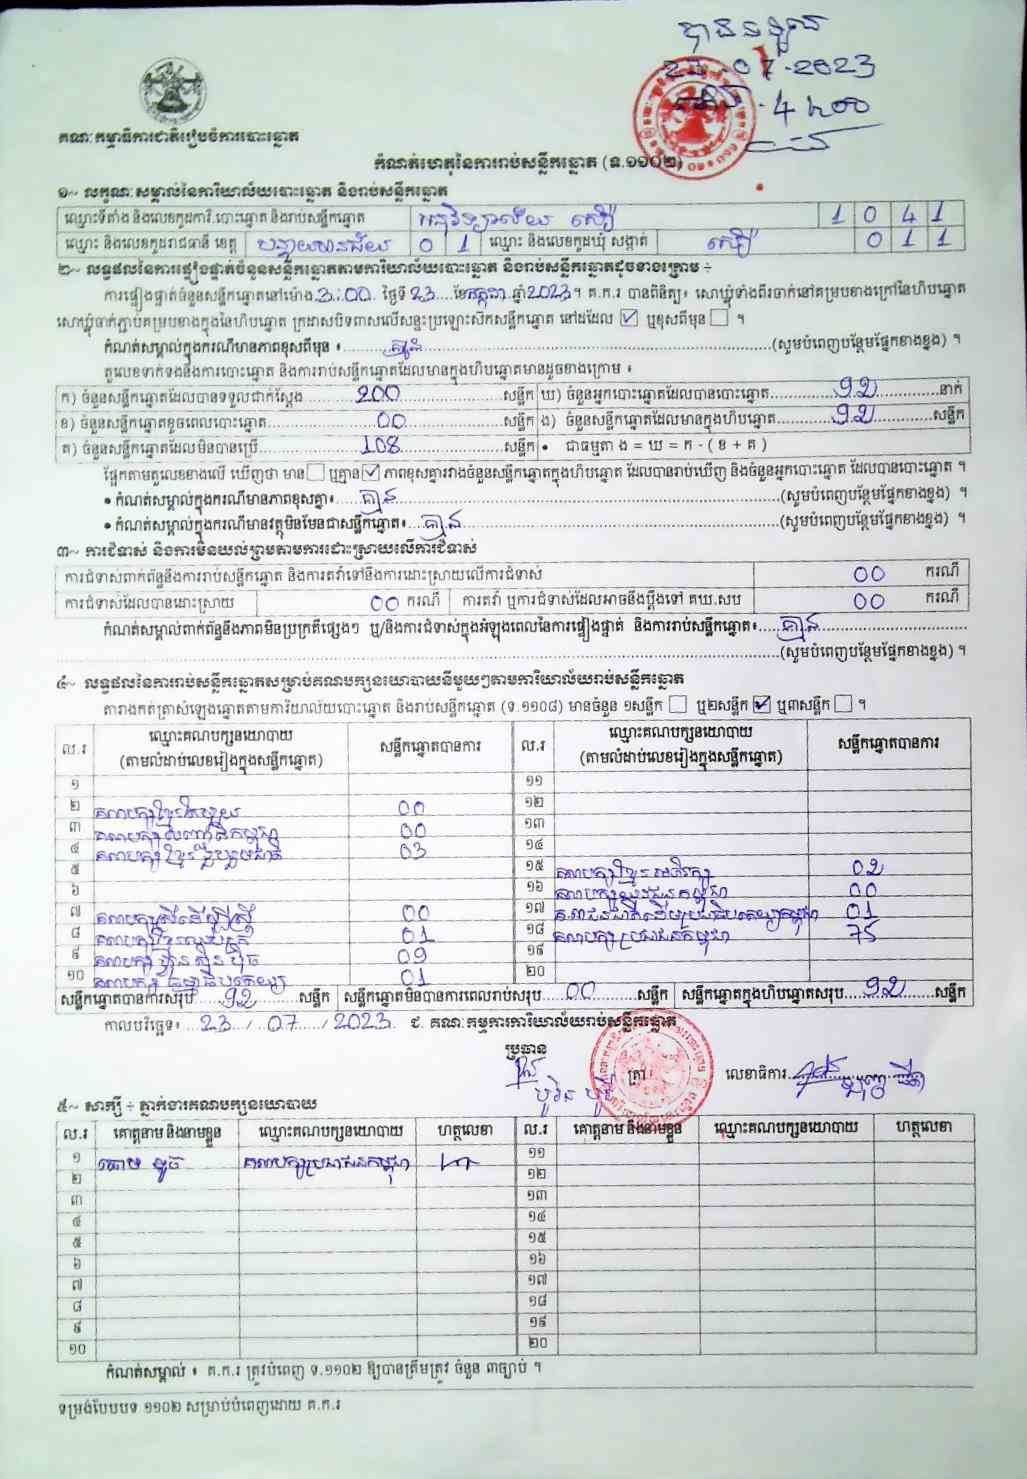 បានទទួល
23-07-2023
គណៈកម្មាធិការជាតិរៀបចំការបោះឆ្នោត
កំណត់ហេតុនៃការរាប់សន្លឹកឆ្នោត (ទ.១១០២)
១~ លក្ខណៈសម្គាល់នៃការិយាល័យបោះឆ្នោត និងរាប់សន្លឹកឆ្នោត
ឈ្មោះទីតាំង និងលេខកូដការិ.បោះឆ្នោត និងរាប់សន្លឹកឆ្នោត អនុវិទ្យាល័យ 1 0 4 1
ឈ្មោះ និងលេខកូដរាជធានី ខេត្ត បន្ទាយមានជ័យ 0 1 ឈ្មោះ និងលេខកូដឃុំ សង្កាត់ 0 1 1
២~ លទ្ធផលនៃការផ្ទៀងផ្ទាត់ចំនួនសន្លឹកឆ្នោតតាមការិយាល័យបោះឆ្នោត និងរាប់សន្លឹកឆ្នោតដូចខាងក្រោម ÷
ការផ្ទៀងផ្ទាត់ចំនួនសន្លឹកឆ្នោតនៅម៉ោង 3:00 ថ្ងៃទី 23 ខែ កក្កដា ឆ្នាំ 2023 ។ គ.ក.រ បានពិនិត្យ៖ សោឃ្លុំទាំងពីរចាក់នៅគម្របខាងក្រៅនៃហិបឆ្នោត
សោឃ្លុំចាក់ភ្ជាប់គម្របខាងក្នុងនៃហិបឆ្នោត ក្រដាសបិទពាសលើសន្ទះប្រឡោះស៊កសន្លឹកឆ្នោត នៅដដែល ☑ ឬខុសពីមុន ☐ ។
កំណត់សម្គាល់ក្នុងករណីមានភាពខុសពីមុន ៖ គ្មាន (សូមបំពេញបន្ថែមផ្នែកខាងខ្នង) ។
តួលេខទាក់ទងនឹងការបោះឆ្នោត និងការរាប់សន្លឹកឆ្នោតដែលមានក្នុងហិបឆ្នោតមានដូចខាងក្រោម ៖
ក) ចំនួនសន្លឹកឆ្នោតដែលបានទទួលជាក់ស្តែង 200 សន្លឹក ឃ) ចំនួនអ្នកបោះឆ្នោតដែលបានបោះឆ្នោត 92 នាក់
ខ) ចំនួនសន្លឹកឆ្នោតខូចពេលបោះឆ្នោត 00 សន្លឹក ង) ចំនួនសន្លឹកឆ្នោតដែលមានក្នុងហិបឆ្នោត 92 សន្លឹក
គ) ចំនួនសន្លឹកឆ្នោតដែលមិនបានប្រើ 108 សន្លឹក • ជាធម្មតា ង = ឃ = ក - ( ខ + គ )
ផ្អែកតាមតួលេខខាងលើ ឃើញថា មាន ☐ ឬគ្មាន ☑ ភាពខុសគ្នារវាងចំនួនសន្លឹកឆ្នោតក្នុងហិបឆ្នោត ដែលបានរាប់ឃើញ និងចំនួនអ្នកបោះឆ្នោត ដែលបានបោះឆ្នោត ។
• កំណត់សម្គាល់ក្នុងករណីមានភាពខុសគ្នា៖ គ្មាន (សូមបំពេញបន្ថែមផ្នែកខាងខ្នង) ។
• កំណត់សម្គាល់ក្នុងករណីមានវត្ថុមិនមែនជាសន្លឹកឆ្នោត៖ គ្មាន (សូមបំពេញបន្ថែមផ្នែកខាងខ្នង) ។
៣~ ការជំទាស់ និងការមិនយល់ព្រមតាមការដោះស្រាយលើការជំទាស់
ការជំទាស់ពាក់ព័ន្ធនឹងការរាប់សន្លឹកឆ្នោត និងការតវ៉ាទៅនឹងការដោះស្រាយលើការជំទាស់ 00 ករណី
ការជំទាស់ដែលបានដោះស្រាយ 00 ករណី ការតវ៉ា ឬការជំទាស់ដែលអាចនឹងប្តឹងទៅ គឃ.សប 00 ករណី
កំណត់សម្គាល់ពាក់ព័ន្ធនឹងភាពមិនប្រក្រតីផ្សេងៗ ឬ/និងការជំទាស់ក្នុងអំឡុងពេលនៃការផ្ទៀងផ្ទាត់ និងការរាប់សន្លឹកឆ្នោត៖ គ្មាន
(សូមបំពេញបន្ថែមផ្នែកខាងខ្នង) ។
៤~ លទ្ធផលនៃការរាប់សន្លឹកឆ្នោតសម្រាប់គណបក្សនយោបាយនីមួយៗតាមការិយាល័យរាប់សន្លឹកឆ្នោត
តារាងកត់ត្រាសំឡេងឆ្នោតតាមការិយាល័យបោះឆ្នោត និងរាប់សន្លឹកឆ្នោត (ទ.១១០៨) មានចំនួន ១សន្លឹក ☐ ឬ២សន្លឹក ☑ ឬ៣សន្លឹក ☐ ។
ល.រ ឈ្មោះគណបក្សនយោបាយ (តាមលំដាប់លេខរៀងក្នុងសន្លឹកឆ្នោត) សន្លឹកឆ្នោតបានការ ល.រ ឈ្មោះគណបក្សនយោបាយ (តាមលំដាប់លេខរៀងក្នុងសន្លឹកឆ្នោត) សន្លឹកឆ្នោតបានការ
១ ១១
២ 00 ១២
៣ 00 ១៣
៤ គណបក្សខ្មែររួបរួមជាតិ 03 ១៤
៥ ១៥ គណបក្សខ្មែរអភិរក្ស 02
៦ ១៦ គណបក្សយុវជនកម្ពុជា 00
៧ គណបក្សស្ត្រីដើម្បីស្ត្រី 00 ១៧ 01
៨ 01 ១៨ គណបក្សប្រជាជនកម្ពុជា 75
៩ គណបក្សហ្វ៊ុនស៊ិនប៉ិច 09 ១៩
១០ គណបក្សធម្មាធិបតេយ្យ 01 ២០
សន្លឹកឆ្នោតបានការសរុប 92 សន្លឹក សន្លឹកឆ្នោតមិនបានការពេលរាប់សរុប 00 សន្លឹក សន្លឹកឆ្នោតក្នុងហិបឆ្នោតសរុប 92 សន្លឹក
កាលបរិច្ឆេទ៖ 23 / 07 / 2023 ជ. គណៈកម្មការការិយាល័យរាប់សន្លឹកឆ្នោត
ប្រធាន
ត្រា លេខាធិការ
៥~ សាក្សី ÷ ភ្នាក់ងារគណបក្សនយោបាយ
ល.រ គោត្តនាម និងនាមខ្លួន ឈ្មោះគណបក្សនយោបាយ ហត្ថលេខា ល.រ គោត្តនាម និងនាមខ្លួន ឈ្មោះគណបក្សនយោបាយ ហត្ថលេខា
១ គណបក្សប្រជាជនកម្ពុជា ១១
២ ១២
៣ ១៣
៤ ១៤
៥ ១៥
៦ ១៦
៧ ១៧
៨ ១៨
៩ ១៩
១០ ២០
កំណត់សម្គាល់ ៖ គ.ក.រ ត្រូវបំពេញ ទ.១១០២ ឱ្យបានត្រឹមត្រូវ ចំនួន ៣ច្បាប់ ។
ទម្រង់បែបបទ ១១០២ សម្រាប់បំពេញដោយ គ.ក.រ